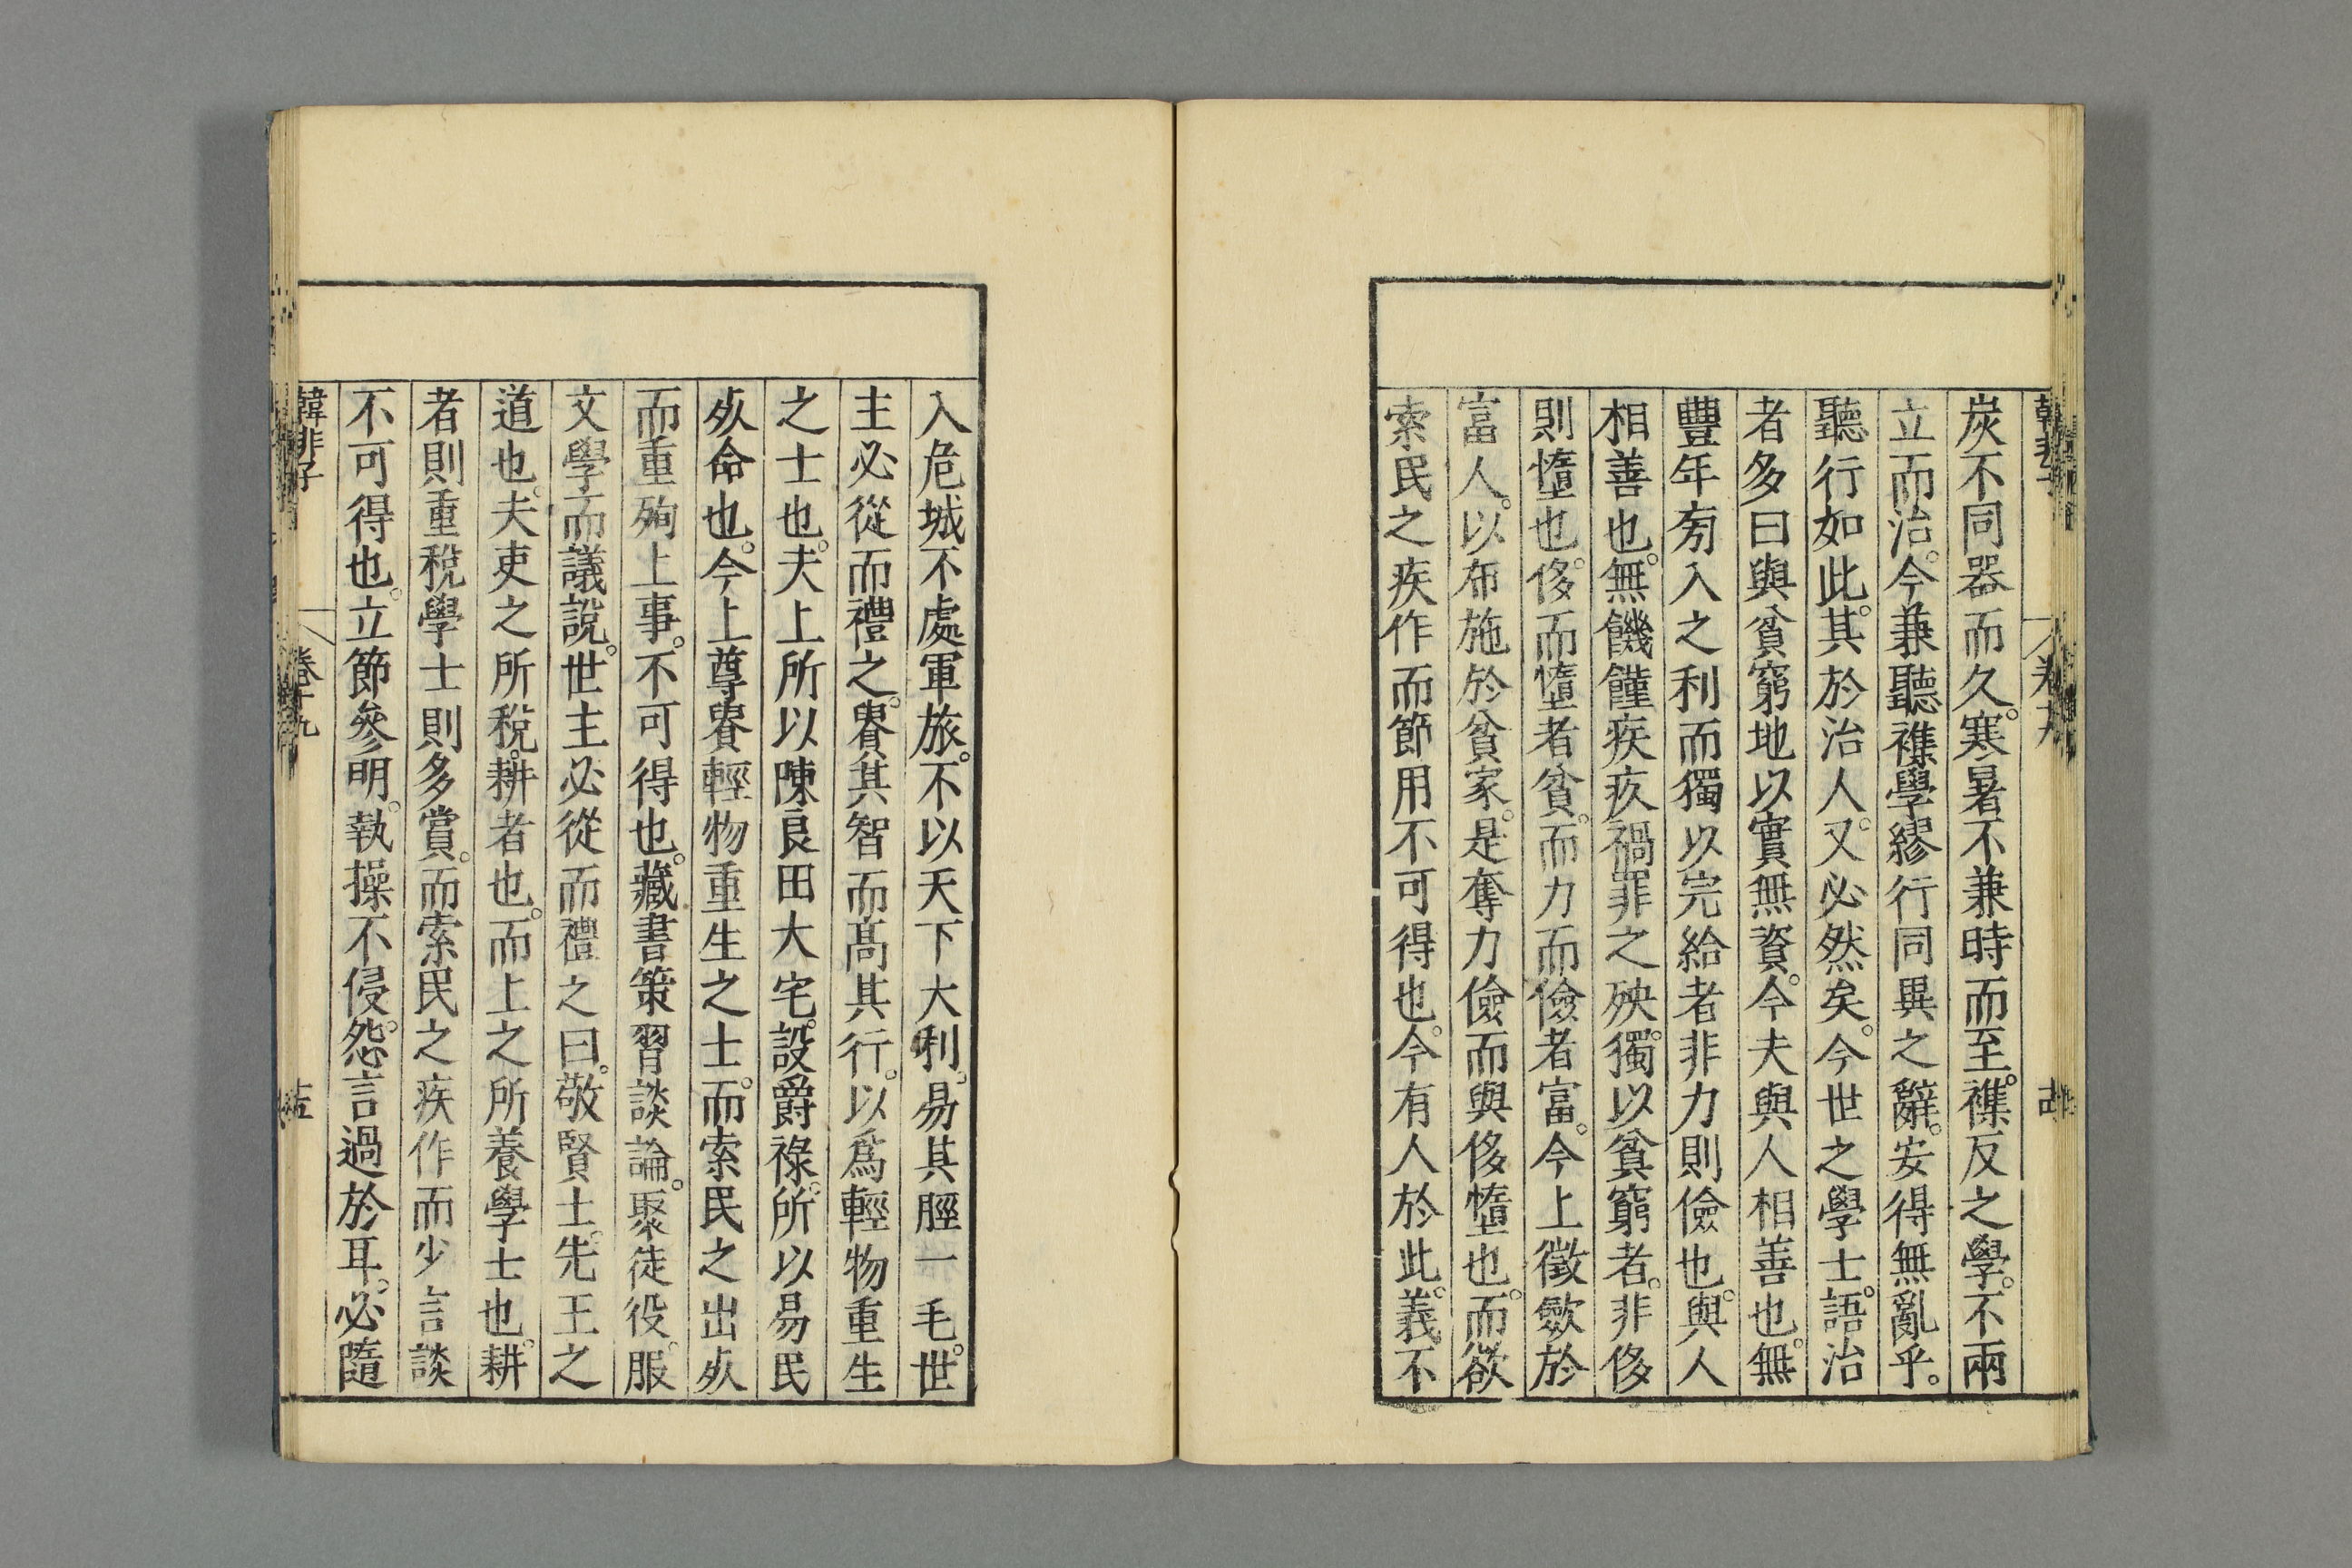 炭不同器而久。寒暑不兼時而至。襍反之學。不兩
立而治。今兼聽襍學繆行同異之辭。安得無亂乎。
聽行如此。其於治人。又必然矣。今世之學士。語治
者多曰與貧窮地以實無資。今夫與人相善也。無
豐年旁入之利而獨以完給者非力則儉也。與人
相善也。無饑饉疾疚禍罪之殃。獨以貧窮者。非侈
則憻也。侈而憻者貧。而力而儉者富。今上徵斂於
富人。以布施於貧家。是奪力儉而與侈憻也。而欲
索民之疾作而節用不可得也。今有人於此。義不
入危城不處軍旅。不以天下大利。易其脛一毛。世
主必從而禮之。貴其智而高其行。以爲輕物重生
之士也。夫上所以陳良田大宅。設爵祿。所以易民
死命也。今上尊貴輕物重生之士。而索民之出死
而重殉上事。不可得也。藏書策習談論。聚徒役。服
文學而議說。世主必從而禮之曰。敬賢士。先王之
道也。夫吏之所稅。耕者也。而上之所養學士也。耕
者則重稅學士則多賞。而索民之疾作而少言談
不可得也。立節參明。執操不侵。怨言過於耳。必隨
韓非子 卷十九